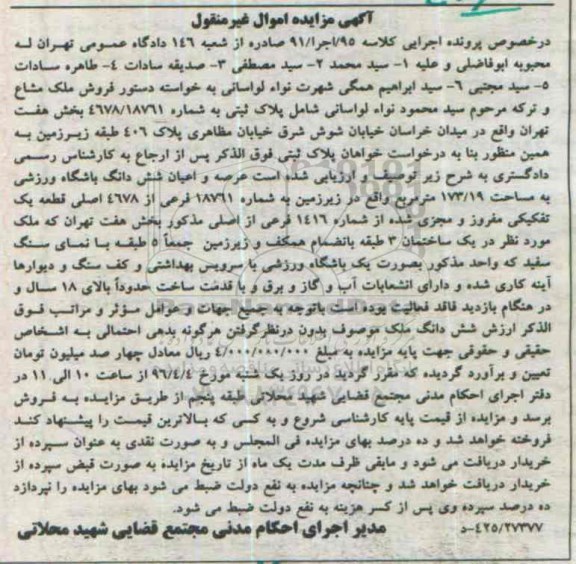 آگهی مزایده اموال غیرمنقول
درخصوص پرونده اجرایی کلاسه ۹۵/اجرا/۹۱ صادره از شعبه ۱۴۶ دادگاه عمومی تهران له
محبوبه ابوفاضلی و علیه ۱- سید محمد ۲- سید مصطفی ۳- صدیقه سادات ۴- طاهره سادات
۵- سید مجتبی ۶- سید ابراهیم همگی شهرت نواء لواسانی به خواسته دستور فروش ملک مشاع
و ترکه مرحوم سید محمود نواء لواسانی شامل پلاک ثبتی به شماره ۴۶۷۸/۱۸۷۶۱ بخش هفت
تهران واقع در میدان خراسان خیابان شوش شرق خیابان مظاهری پلاک ۴۰۶ طبقه زیرزمین به
همین منظور بنا به درخواست خواهان پلاک ثبتی فوق الذکر پس از ارجاع به کارشناس رسمی
دادگستری به شرح زیر توصیف و ارزیابی شده است عرصه و اعیان شش دانگ باشگاه ورزشی
به مساحت ۱۷۳/۱۹ مترمربع واقع در زیرزمین به شماره ۱۸۷۶۱ فرعی از ۴۶۷۸ اصلی قطعه یک
تفکیکی مفروز و مجزی شده از شماره ۱۴۱۶ فرعی از اصلی مذکور بخش هفت تهران که ملک
مورد نظر در یک ساختمان ۳ طبقه بانضمام همکف و زیرزمین جمعاً ۵ طبقه با نمای سنگ
سفید که واحد مذکور بصورت یک باشگاه ورزشی با سرویس بهداشتی و کف سنگ و دیوارها
آینه کاری شده و دارای انشعابات آب و گاز و برق و با قدمت ساخت حدوداً بالای ۱۸ سال و
در هنگام بازدید فاقد فعالیت بوده است باتوجه به جمیع جهات و عوامل مؤثر و مراتب فوق
الذکر ارزش شش دانگ ملک موصوف بدون درنظرگرفتن هرگونه بدهی احتمالی به اشخاص
حقیقی و حقوقی جهت پایه مزایده به مبلغ ۴/۰۰۰/۰۰۰/۰۰۰ ریال معادل چهار صد میلیون تومان
تعیین و برآورد گردیده که مقرر گردید در روز یک شنبه مورخ ۹۶/۴/۴ از ساعت ۱۰ الی ۱۱ در
دفتر اجرای احکام مدنی مجتمع قضایی شهید محلاتی طبقه پنجم از طریق مزایده به فروش
برسد و مزایده از قیمت پایه کارشناسی شروع و به کسی که بالاترین قیمت را پیشنهاد کند
فروخته خواهد شد و ده درصد بهای مزایده فی المجلس و به صورت نقدی به عنوان سپرده از
خریدار دریافت می شود و مابقی ظرف مدت یک ماه از تاریخ مزایده به صورت قبض سپرده از
خریدار دریافت خواهد شد و چنانچه مزایده به نفع دولت ضبط می شود بهای مزایده را نپردازد
ده درصد سپرده وی پس از کسر هزینه به نفع دولت ضبط می شود.
۴۲۵/۲۷۳۷۷-د مدیر اجرای احکام مدنی مجتمع قضایی شهید محلاتی